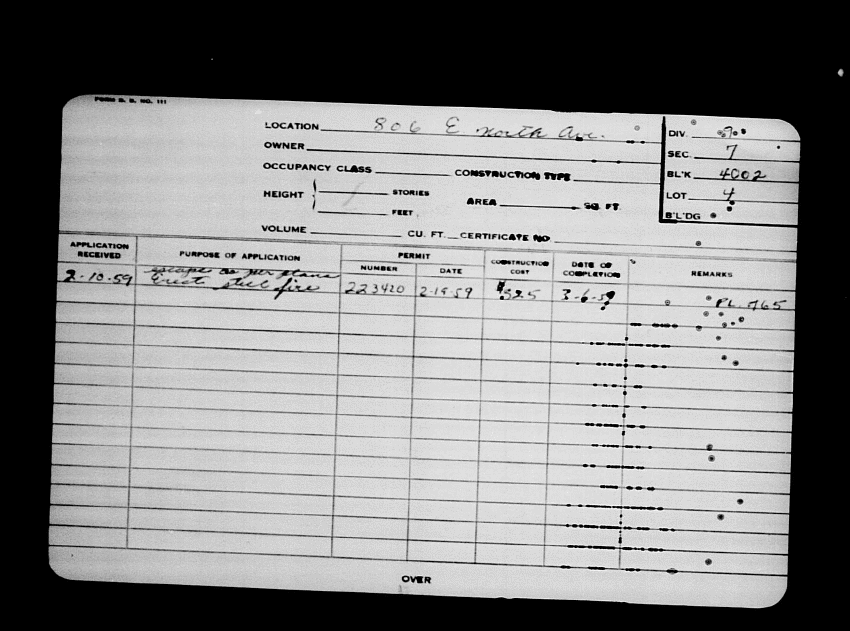 FORM B. B. NO. 111
LOCATION 806 E North Ave.
OWNER
OCCUPANCY CLASS CONSTRUCTION TYPE
HEIGHT STORIES
FEET
AREA SQ. FT.
VOLUME CU. FT. CERTIFICATE NO
DIV. 7
SEC. 7
BL'K 4002
LOT 4
B'L'DG
APPLICATION RECEIVED PURPOSE OF APPLICATION PERMIT NUMBER DATE CONSTRUCTION COST DATE OF COMPLETION REMARKS
escape as per plans
2-10-59 Erect steel fire 223420 2-19-59 $325 3-6-59 PL. 765
OVER